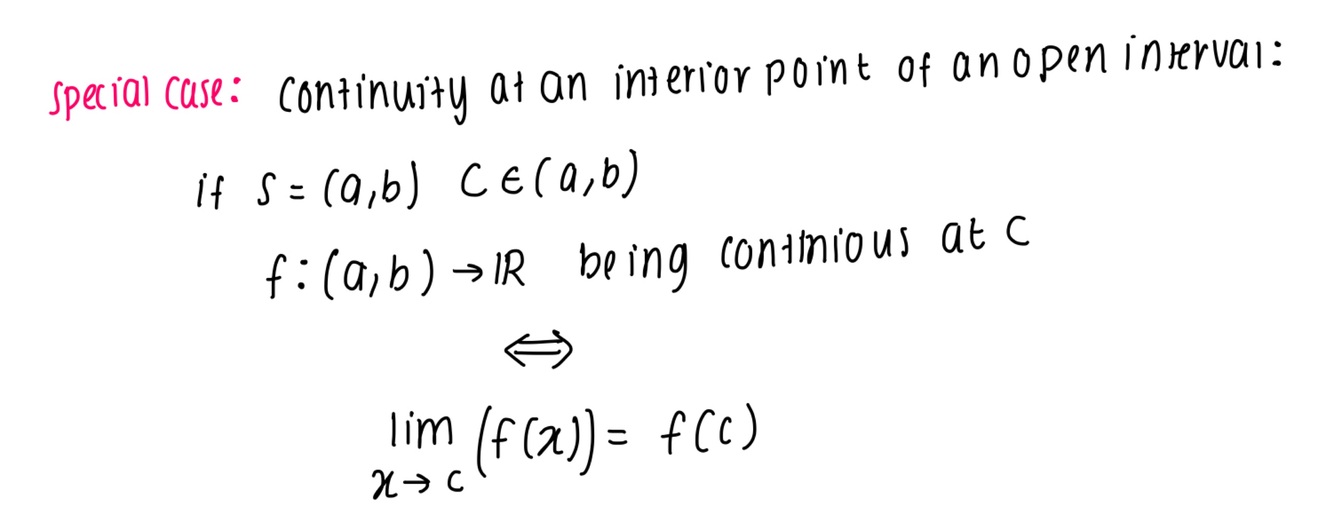 special case: continuity at an interior point of an open interval:
if S = (a,b) C ∈ (a,b)
f : (a,b) → ℝ being continious at c
⇔
lim (f(x)) = f(c)
x → c